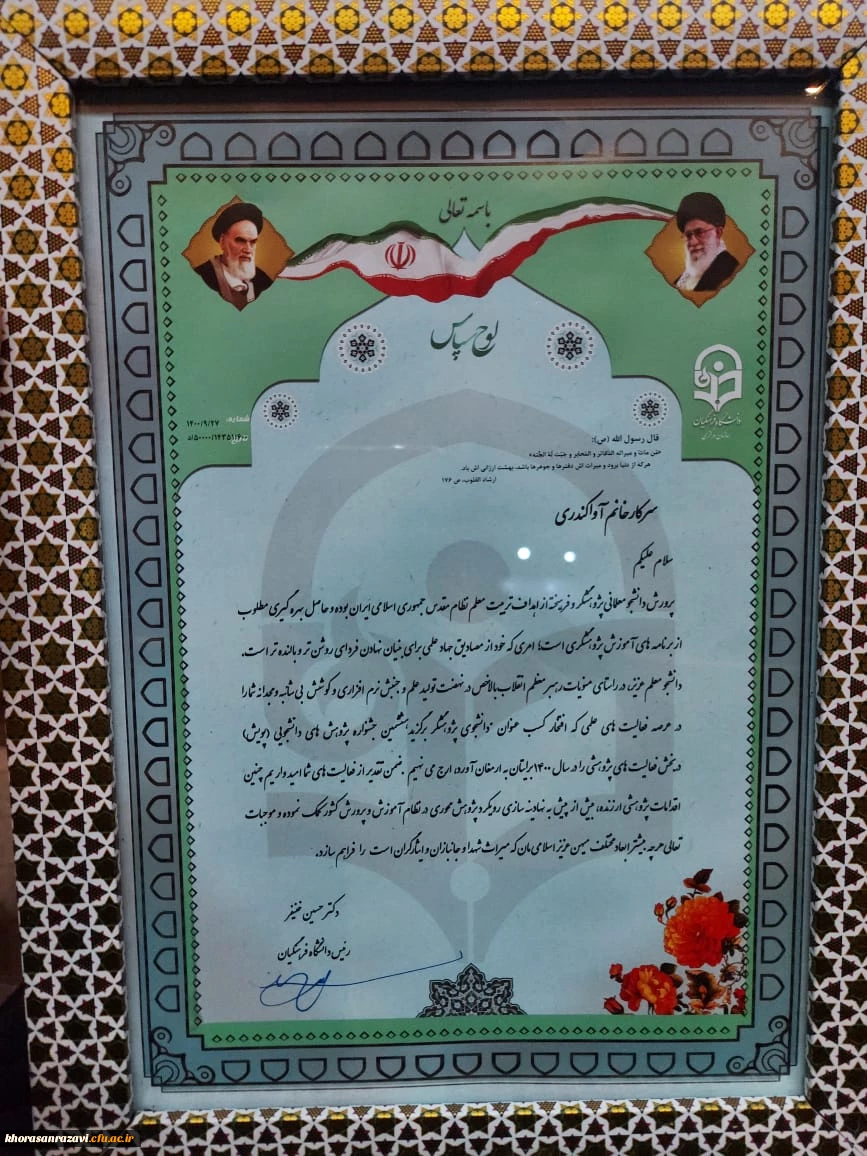 باسمه تعالی
لوح سپاس
دانشگاه فرهنگیان
شماره:
۱۴۰۰/۹/۲۷
۵۰۰۰۰/۱۴۳۵۱/۴۰۰/د
قال رسول الله (ص):
هرکه از دنیا برود و میراث اش دفترها و جوهرها باشد، بهشت ارزانی اش باد.
ارشاد القلوب، ص ۱۷۶
سرکار خانم آوا کندری
سلام علیکم
پرورش دانشجو معلمانی پژوهشگر و فریخته از اهداف تربیت معلم نظام مقدس جمهوری اسلامی ایران بوده و حاصل بهره گیری مطلوب
از برنامه های آموزش پژوهشگری است؛ امری که خود از مصادیق جهاد علمی برای بنیان نهادن فردای روشن تر و بالنده تر است.
دانشجو معلم عزیز، در راستای منویات رهبر معظم انقلاب بالاخص در نهضت تولید علم و جنبش نرم افزاری و کوشش بی شائبه و مجدانه شما را
در عرصه فعالیت های علمی که افتخار کسب عنوان "دانشجوی پژوهشگر برگزیده هشتمین جشنواره پژوهش های دانشجویی (پویش)
در بخش فعالیت های پژوهشی را در سال ۱۴۰۰ برایتان به ارمغان آورد، ارج می نهیم. ضمن تقدیر از فعالیت های شما امید واریم چنین
اقدامات پژوهشی ارزنده، بیش از پیش به نهادینه سازی رویکرد پژوهش محوری در نظام آموزش و پرورش کشور کمک نموده و موجبات
تعالی هرچه بیشتر ابعاد مختلف میهن عزیز اسلامی مان که میراث شهدا و جانبازان و ایثارگران است را فراهم سازد.
دکتر حسین خنیفر
رئیس دانشگاه فرهنگیان
khorasanrazavi.cfu.ac.ir